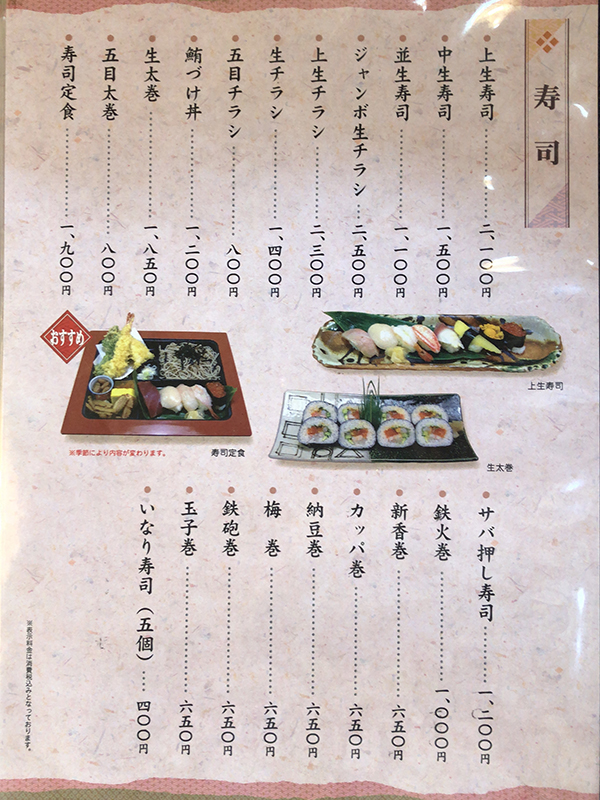 寿司
上生寿司 二、一〇〇円
中生寿司 一、五〇〇円
並生寿司 一、一〇〇円
ジャンボ生チラシ 二、五〇〇円
上生チラシ 二、三〇〇円
生チラシ 一、四〇〇円
五目チラシ 八〇〇円
鮪づけ丼 一、二〇〇円
生太巻 一、八五〇円
五目太巻 八〇〇円
寿司定食 一、九〇〇円
おすすめ
上生寿司
生太巻
寿司定食
※季節により内容が変わります。
サバ押し寿司 一、二〇〇円
鉄火巻 一、〇〇〇円
新香巻 六五〇円
カッパ巻 六五〇円
納豆巻 六五〇円
梅巻 六五〇円
鉄砲巻 六五〇円
玉子巻 六五〇円
いなり寿司（五個） 四〇〇円
※表示料金は消費税込みとなっております。